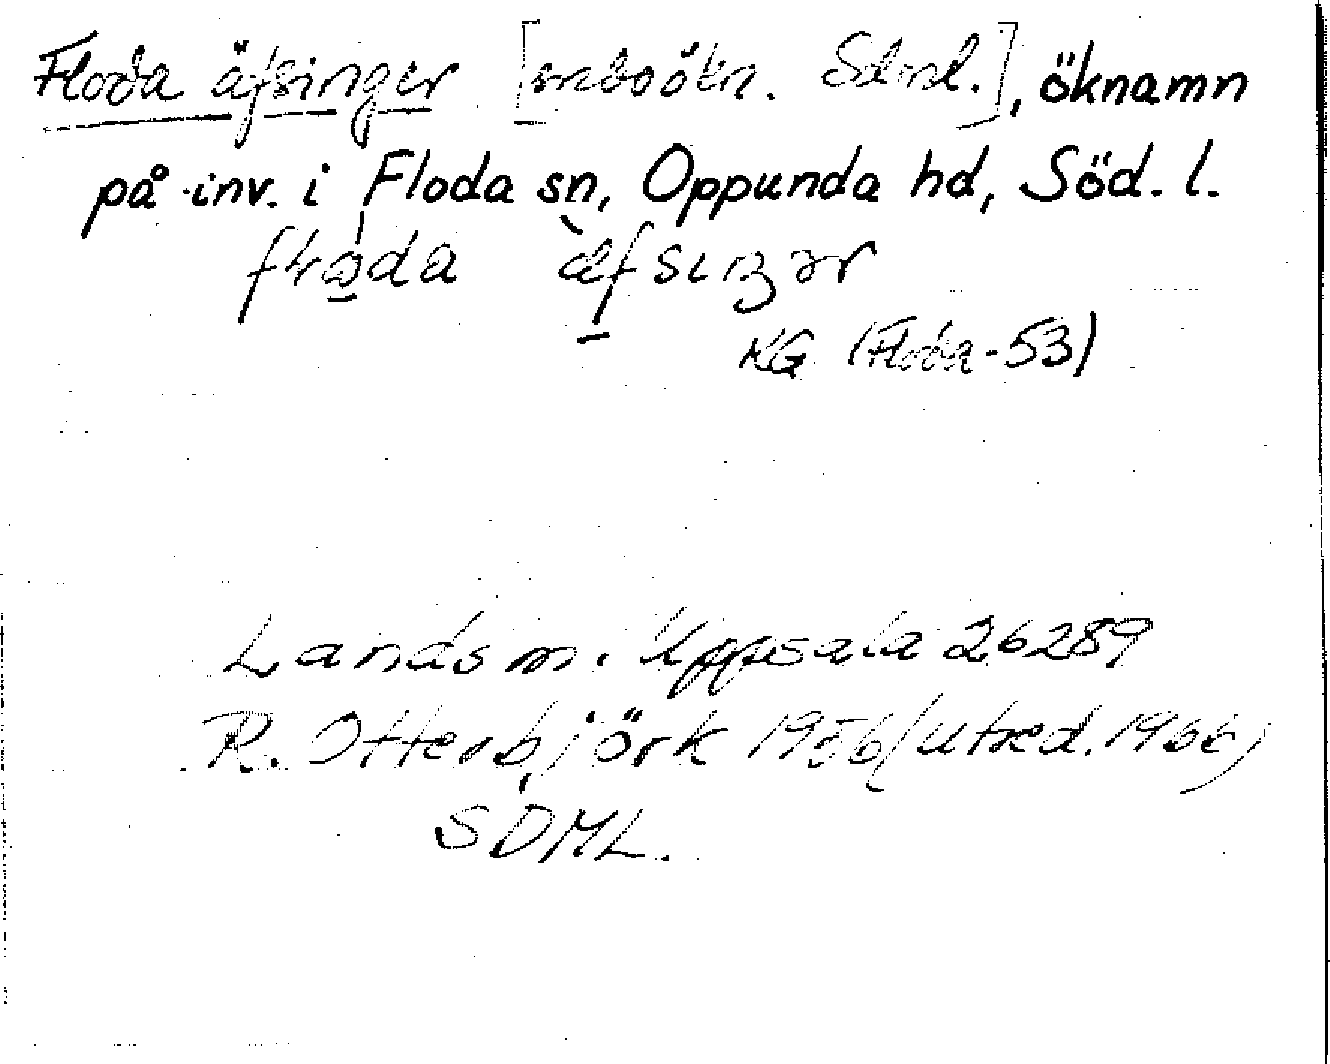 Floda äfsinger [snboökn. Sdml.], öknamn
på inv. i Floda sn, Oppunda hd, Söd. l.
KG (Floda-53)
Landsm. Uppsala 26289
R. Otterbjörk 1956 (utred. 1966)
SDML.